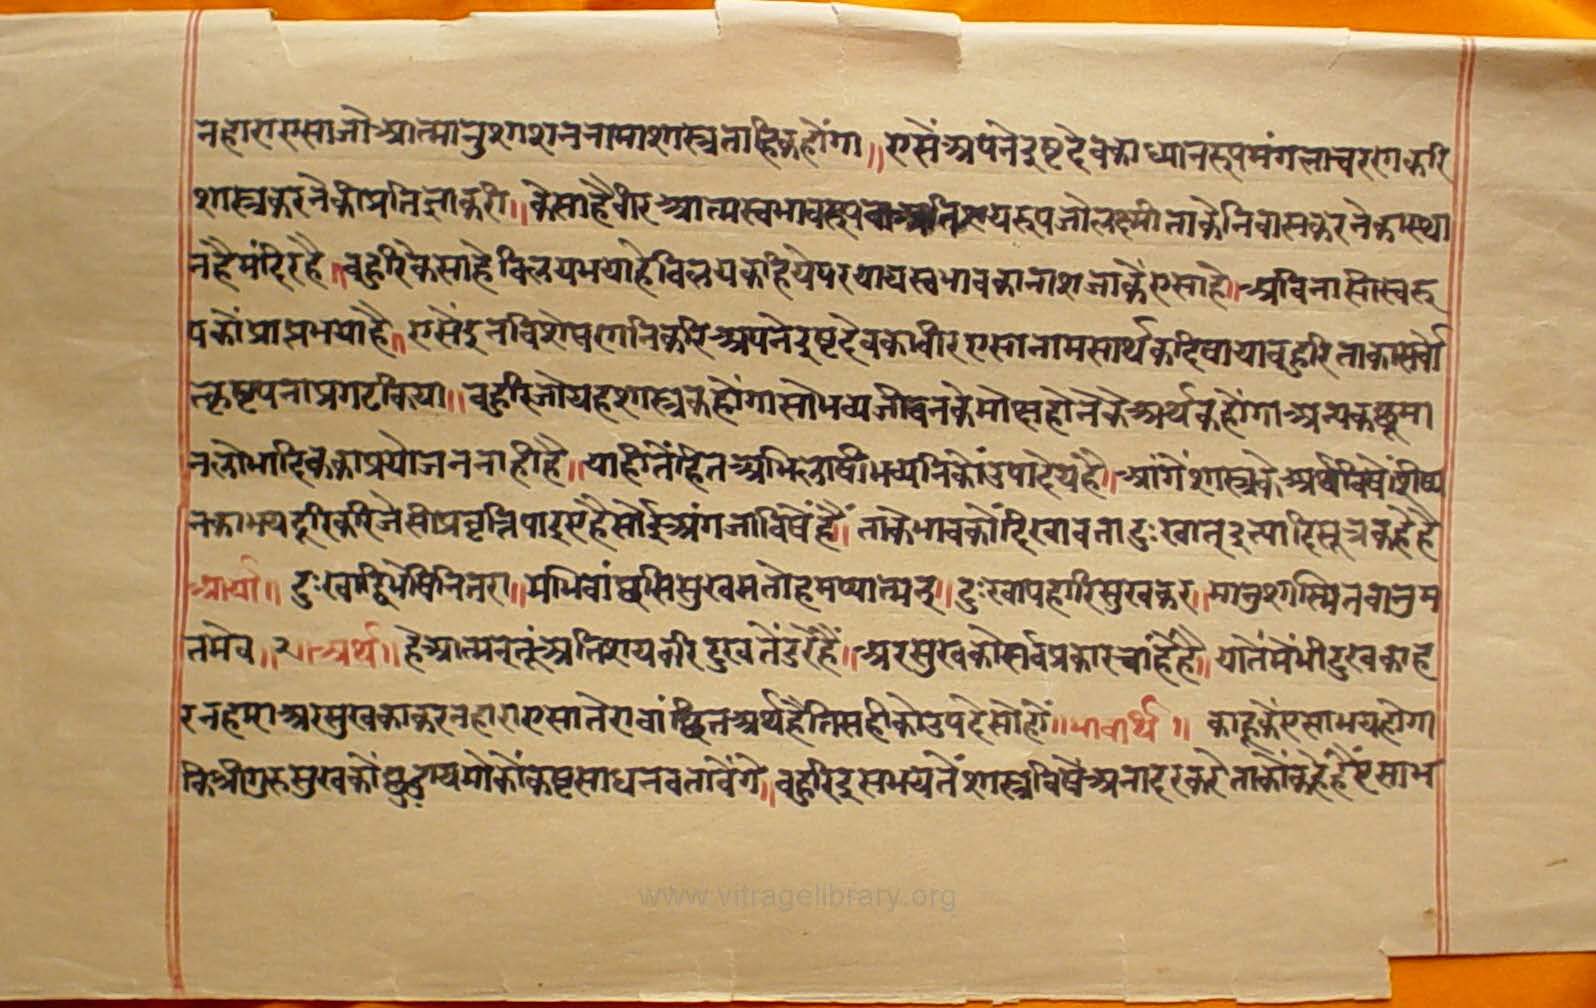 नहारा एसा जो आत्मानुशाशन नामा शास्त्र ताहि कहोंगा॥ एसें अपने इष्ट देव का ध्यान रूप मंगलाचरण करि
शास्त्र करने की प्रतिज्ञा करी॥ कैसा है वीर आत्मस्वभाव रूप वा अतिशय रूप जो लक्ष्मी ताके निवास करने का स्था
न है मंदिर है॥ बहुरि कैसा है विलय भया है विलय कहिये पर याय स्वभाव का नाश जाकैं एसा है॥ अविनासी स्वरू
प कों प्राप्त भया है॥ एसें इन विशेषणनि करि अपने इष्ट देव का वीर एसा नाम सार्थक दिषाया बहुरि ताका सर्वो
त्कृष्टपना प्रगट किया॥ बहुरि जो यह शास्त्र कहोंगा सो भव्य जीवन के मोक्ष होने के अर्थ कहोंगा अन्य कछू मा
न लोभादिक का प्रयोजन नाही है॥ याही तें हित अभिलाषी भव्यनि कों उपादेय है॥ आगें शास्त्र के अर्थ विषें शिष्य
न का भय दूरि करि जैसी प्रवृत्ति पाइए है सोई अंग जा विषें है॥ ताके भाव कों दिखावता दुःखात् इत्यादि सूत्र कहे है
आर्या॥ दुःखाद्विभेषि नितरा॥ मभिवांछसि सुखमतोहमप्यात्मन्॥ दुःखापहारि सुखकर॥ मानुशास्मि तवानुम
तमेव॥२॥ अर्थ॥ है आत्मन् तूं अतिशय करि दुख तें डरें हैं॥ अर सुख कों सर्व प्रकार चांहें है॥ यातें में भी दुख का ह
रनहारा अर सुख का करनहारा एसा तेरा वांछित अर्थ है तिसही को उपदेसों हों॥ भावार्थ॥ काहू कें एसा भय होगा
कि श्रीगुरु सुख कों छुडाय मोकों कष्ट साधन बतावेंगे॥ बहुरि इस भय तें शास्त्र विषै अनादर करै ताकों कहे हैं एसा भ
www.vitragelibrary.org